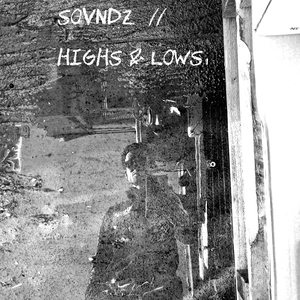 SOVNDZ //
HIGHS & LOWS.